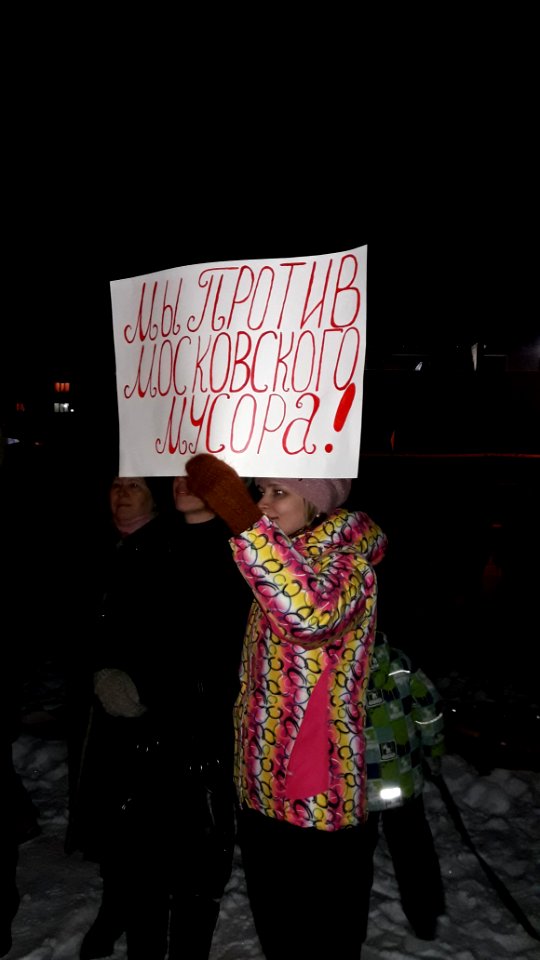 Мы ПРОТИВ
МОСКОВСКОГО
МУСОРа!